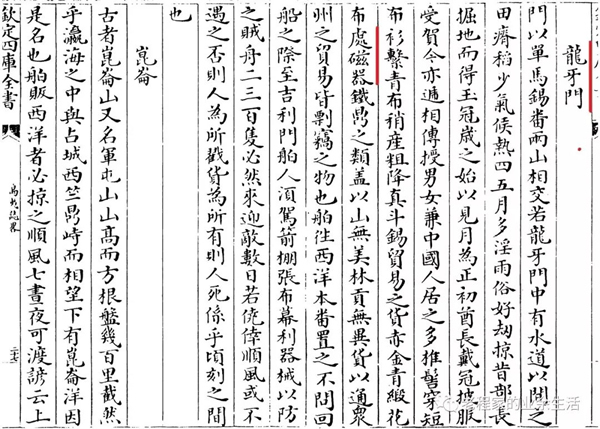 龍牙門
門以單馬錫番兩山相交若龍牙門中有水道以間之
田瘠稻少氣候熱四五月多淫雨俗好刼掠昔部長
掘地而得玉冠歲之始以見月為正初酋長戴冠披服
受賀今亦遞相傳授男女兼中國人居之多椎髻穿短
布衫繫青布稍産粗降真斗錫貿易之貨赤金青緞花
布處磁器鐵鼎之類盖以山無美林貢無異貨以通衆
州之貿易皆剽竊之物也舶徃西洋本番置之不問回
船之際至吉利門舶人須駕箭棚張布幕利器械以防
之賊舟二三百隻必然來迎敵數日若僥倖順風或不
遇之否則人為所戮貨為所有則人死係乎頃刻之間
也
崑崙
古者崑崙山又名軍屯山山高而方根盤幾百里截然
乎瀛海之中與占城西竺鼎峙而相望下有崑崙洋因
是名也舶販西洋者必掠之順風七晝夜可渡諺云上
欽定四庫全書
島夷誌畧
程家的业生活